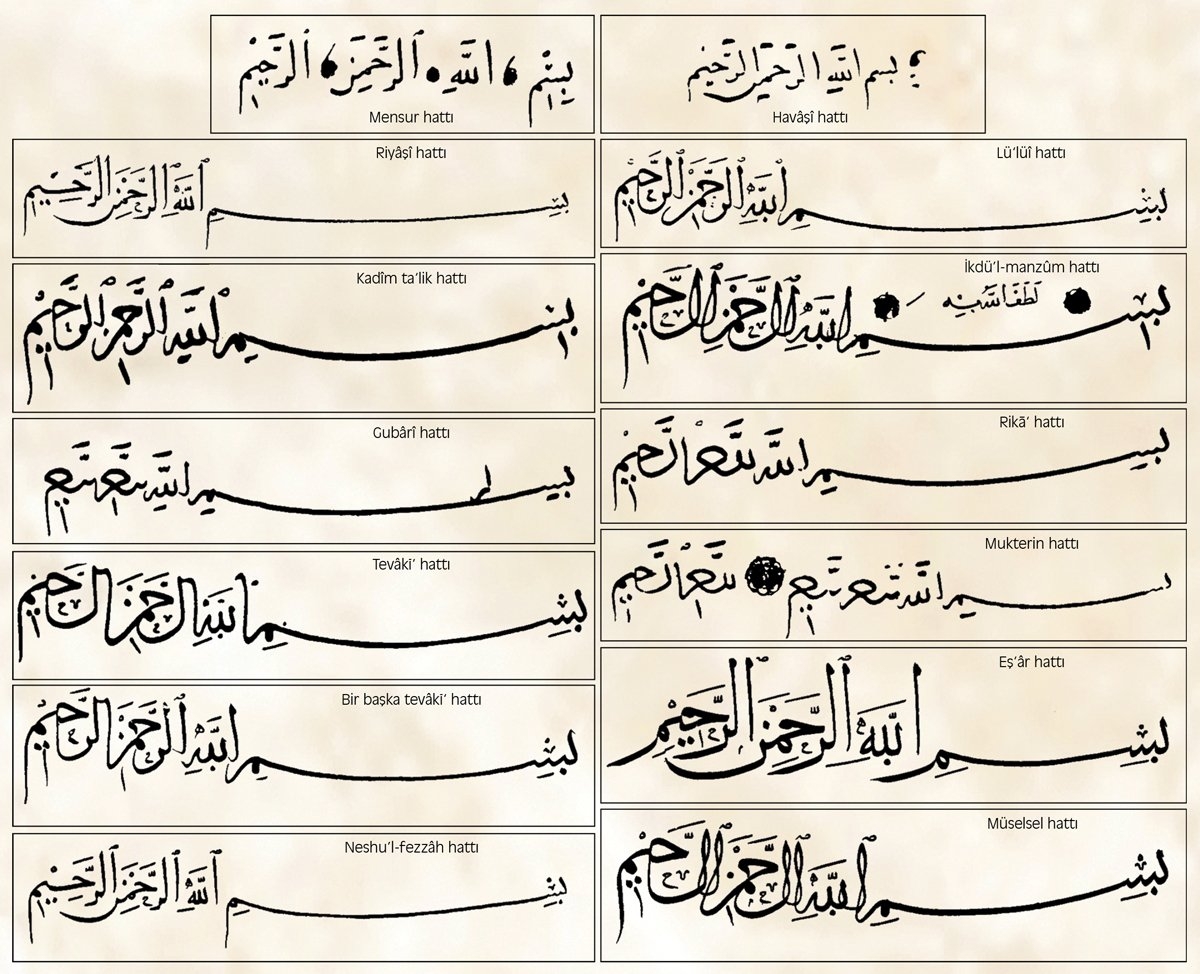 بسم الله الرحمن الرحيم
Mensur hattı
بسم الله الرحمن الرحيم
Havâşî hattı
Riyâşî hattı
بسم الله الرحمن الرحيم
Lü’lüî hattı
بسم الله الرحمن الرحيم
Kadîm ta’lik hattı
بسم الله الرحمن الرحيم
İkdü’l-manzûm hattı
بسم الله الرحمن الرحيم
Gubârî hattı
بسم الله الرحمن الرحيم
Rikā‘ hattı
بسم الله الرحمن الرحيم
Tevâkī‘ hattı
بسم الله الرحمن الرحيم
Mukterin hattı
بسم الله الرحمن الرحيم
Bir başka tevâkī‘ hattı
بسم الله الرحمن الرحيم
Eş‘âr hattı
بسم الله الرحمن الرحيم
Neshu’l-fezzâh hattı
بسم الله الرحمن الرحيم
Müselsel hattı
بسم الله الرحمن الرحيم